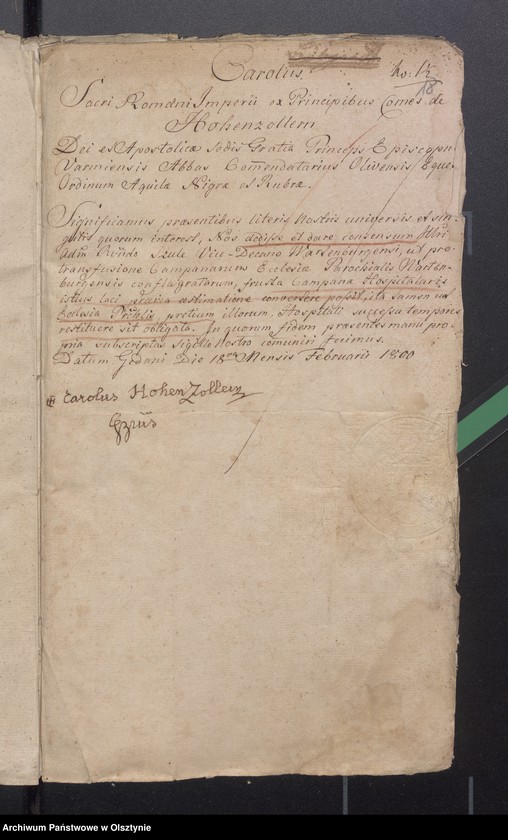 Carolus.
No: 12
18
Sacri Romani Imperii ex Principibus Comes de
Hohenzollern
Dei et Apostolicæ Sedis Gratia Princeps Episcopus
Varmiensis Abbas Comendatarius Olivensis Eques
Ordinum Aquilæ Nigræ et Rubræ.
Significamus præsentibus literis Nostris universis et sin-
gulis quorum interest, Nos dedisse et dare consensum
Rndo Szulc Vice-Decano Wartenburgensi, ut pro
transfusione Campanarum Ecclesiæ Parochialis Warten-
burgensis conflagratarum, frusta Campanæ Hospitalis
istius loci prævia estimatione convertere possit, ita tamen ut
Ecclesia pretium illorum, Hospitali successu temporis
restituere sit obligata. In quorum fidem præsentes manu pro-
pria subscriptas sigillo Nostro comuniri fecimus.
Datum Gedani Die 18va Mensis Februarii 1800
Carolus HohenZollern
Archiwum Państwowe w Olsztynie